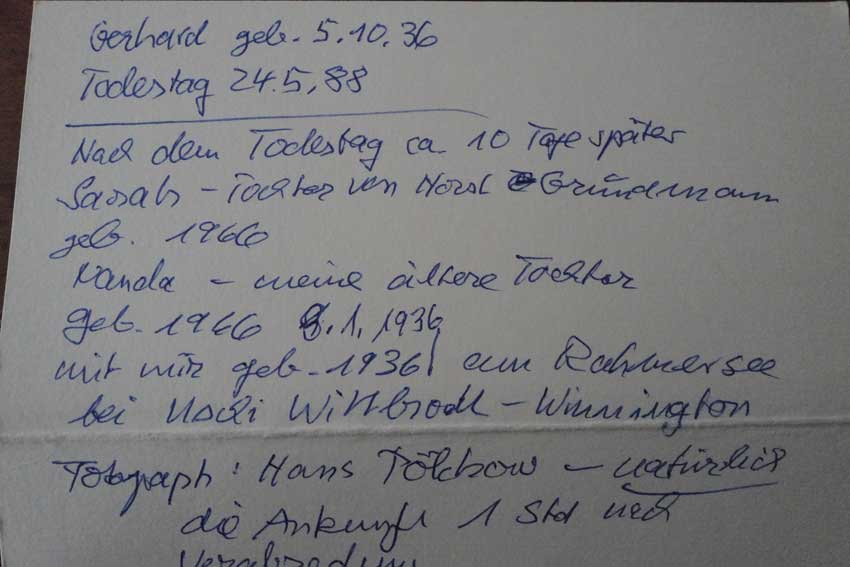 Gerhard geb. 5.10.36
Todestag 24.5.88
Nach dem Todestag ca. 10 Tage später
Sarah - Tochter von Horst Gründemann
geb. 1966
Nanda - meine ältere Tochter
geb. 1966 8.1.1936
mit mir geb. 1936 am Rahmersee
bei Uschi Wittbrodt - Winnington
Fotograph: Hans Pölkow - natürlich
die Ankunft 1 Std nach
Verabredung